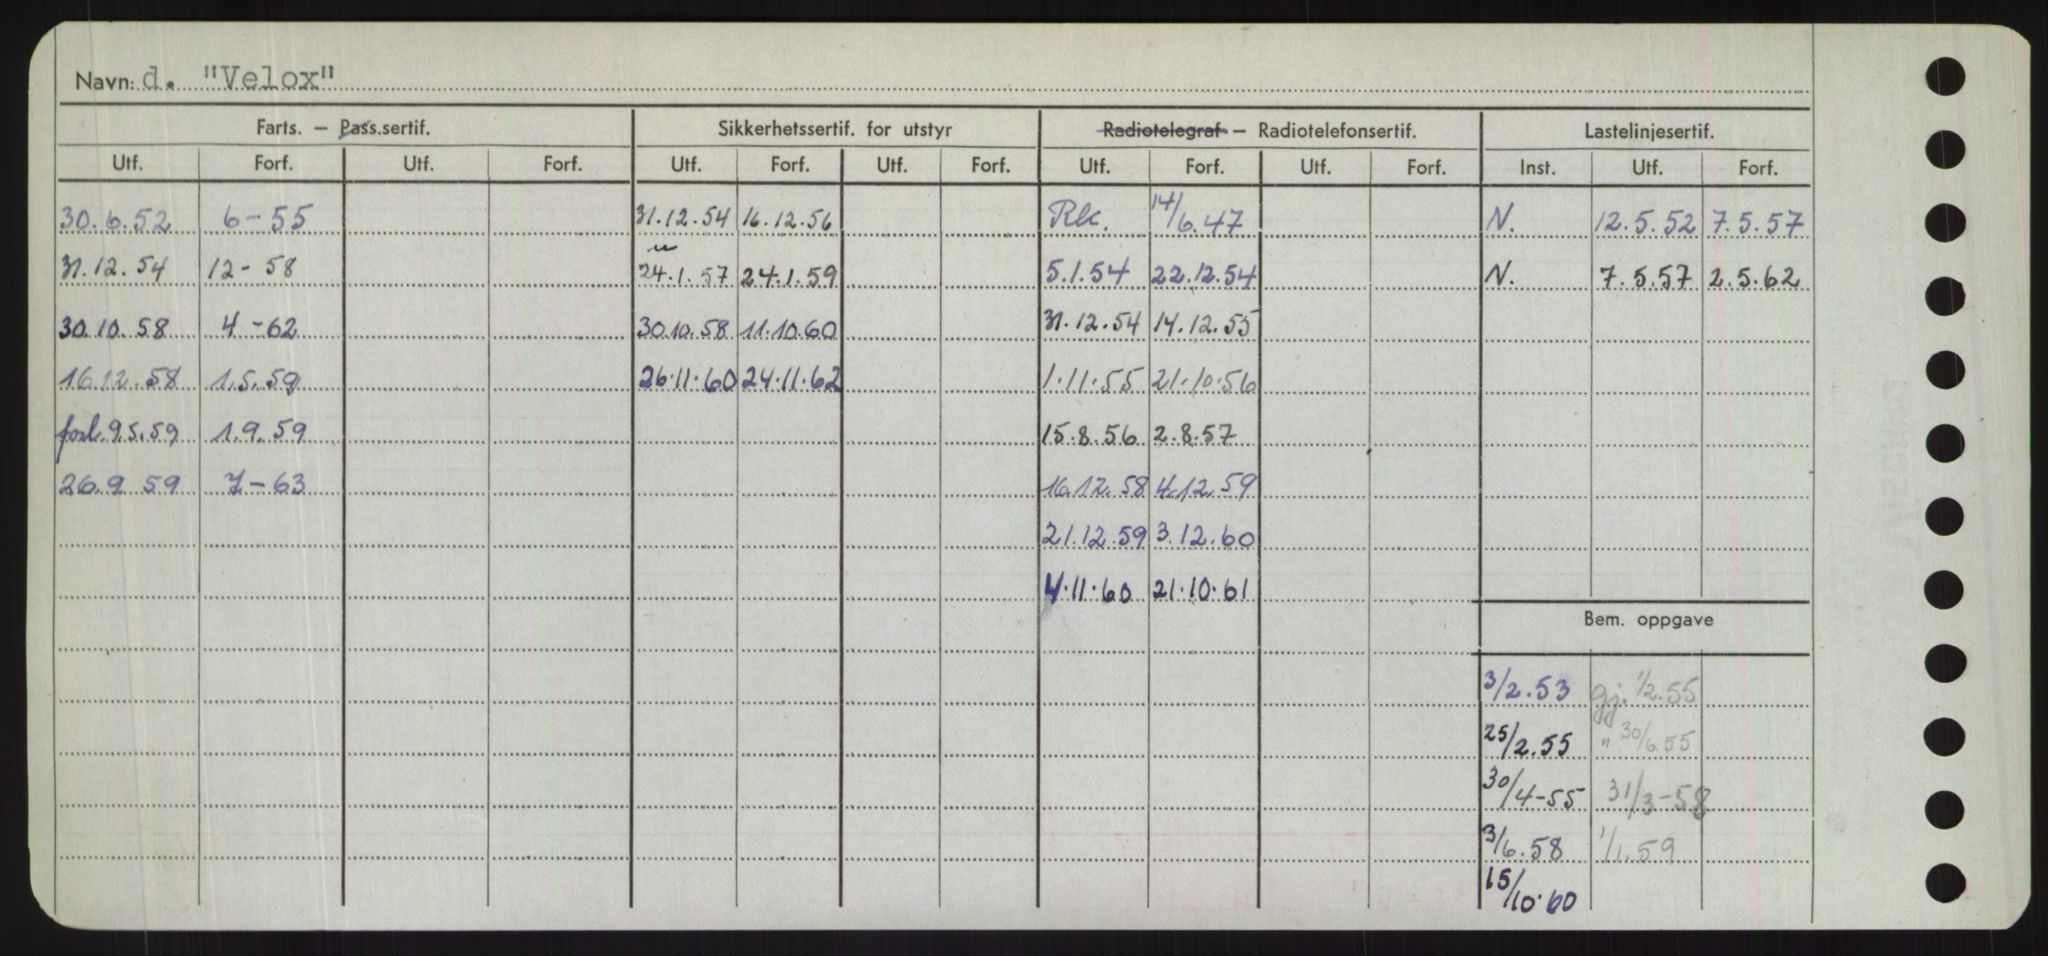 Navn: d. "Velox"
Farts. – Pass.sertif. Sikkerhetssertif. for utstyr Radiotelegraf – Radiotelefonsertif. Lastelinjesertif.
Utf. Forf. Utf. Forf. Utf. Forf. Utf. Forf. Utf. Forf. Utf. Forf. Inst. Utf. Forf.
30.6.52 6-55 31.12.54 16.12.56 Rk. 14/6.47 N. 12.5.52 7.5.57
31.12.54 12-58 24.1.57 24.1.59 5.1.54 22.12.54 N. 7.5.57 2.5.62
30.10.58 4-62 30.10.58 11.10.60 31.12.54 14.12.55
16.12.58 1.5.59 26.11.60 24.11.62 1.11.55 21.10.56
forl. 9.5.59 1.9.59 15.8.56 2.8.57
26.9 59 7-63 16.12.58 4.12.59
21.12.59 3.12.60
4.11.60 21.10.61
Bem. oppgave
3/2.53 gj. 1/2.55
25/2.55 " 30/6.55
30/4-55 31/3-58
3/6.58 1/1.59
15/10.60